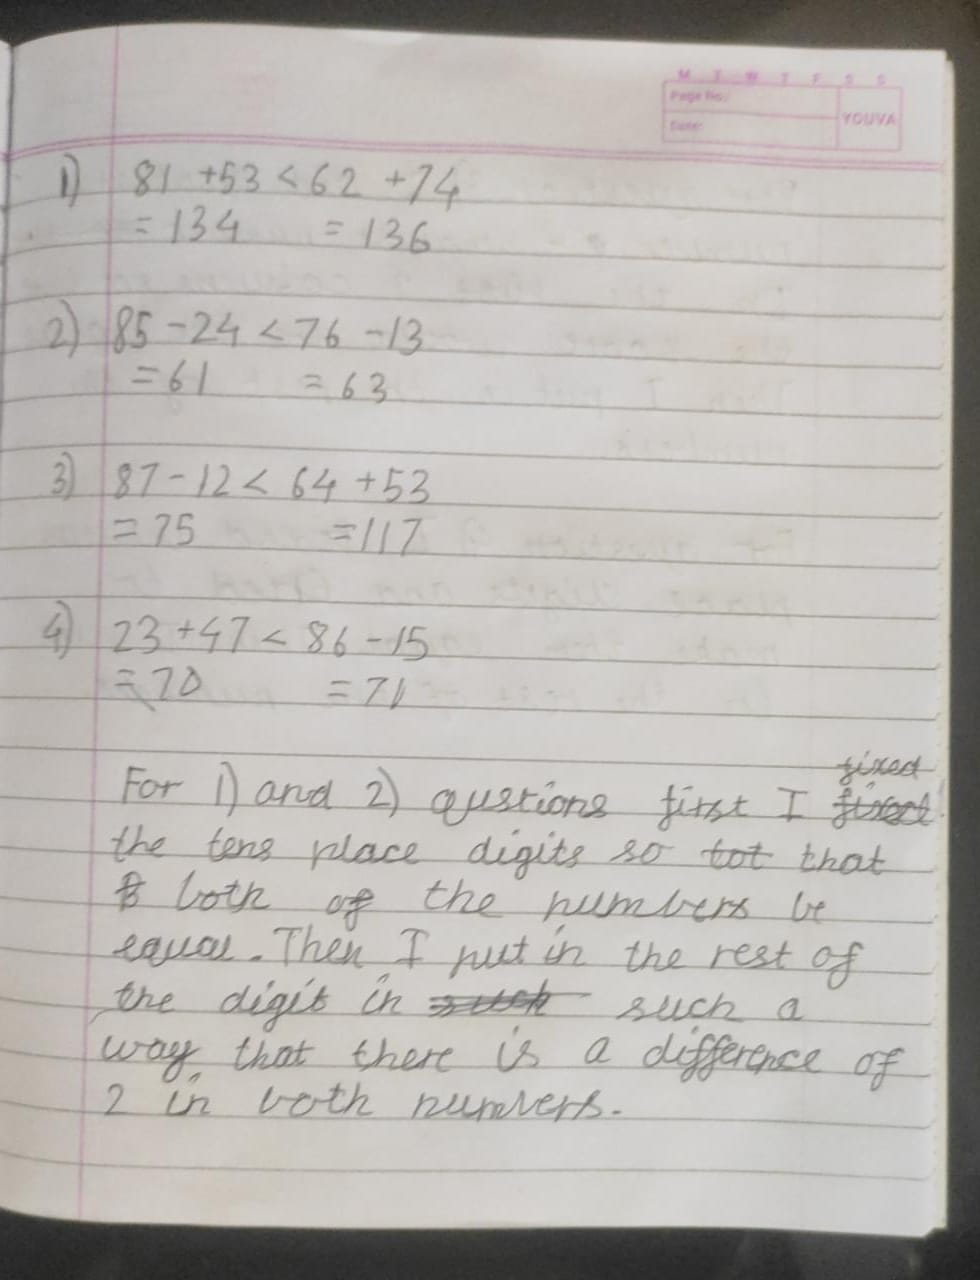 M T W T F S S
Page No.:
Date:
YOUVA
1) 81 +53 < 62 +74
= 134 = 136
2) 85 -24 < 76 -13
= 61 = 63
3) 87 - 12 < 64 +53
= 75 =117
4) 23 +47 < 86 -15
= 70 = 71
fixed
For 1) and 2) qustions first I
the tens place digits so tot that
both of the numbers be
equal. Then I put in the rest of
the digit in such a
way that there is a difference of
2 in both numbers.